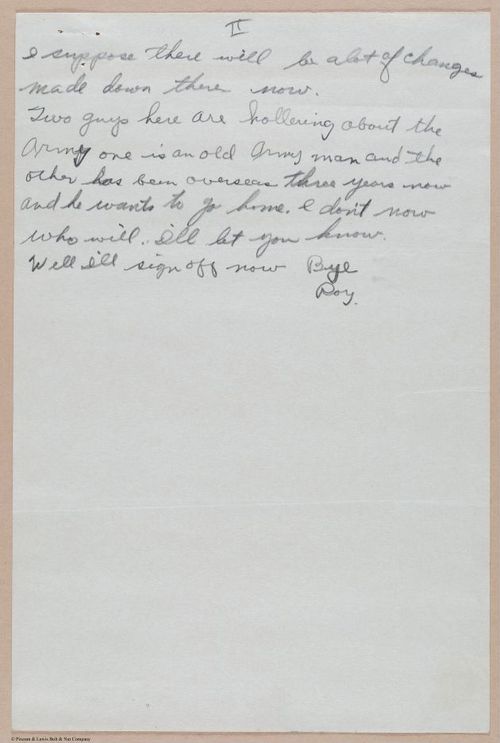 II
I suppose there will be alot of changes
made down there now.
Two guys here are hollering about the
Army one is an old Army man and the
other has been overseas three years now
and he wants to go home. I don't now
who will. I'll let you know.
Well I'll sign off now Bye
Roy.
© Pheoll & Lewis Bolt & Nut Company